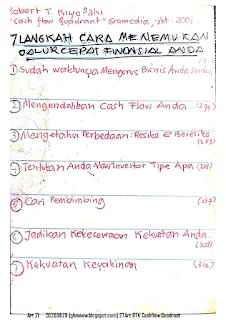 Robert T. Kiyosaki
"Cash flow Quadrant" Gramedia, Jkt. 2001
7 LANGKAH CARA MENEMUKAN
JALUR CEPAT FINANSIAL ANDA
1 Sudah waktunya Mengurus Bisnis Anda Sendiri
2 Mengendalikan Cash Flow Anda. (275)
3 Mengetahui Perbedaan: Resiko & Beresiko
4 Tentukan Anda Mau Investor Tipe Apa
5 Cari Pembimbing
6 Jadikan Kekecewaan Kekuatan Anda.
7 Kekuatan Keyakinan (315)
Art 21 20200829 [gbinnew.blogspot.com] 27Art RTK Cashflow Quadrant